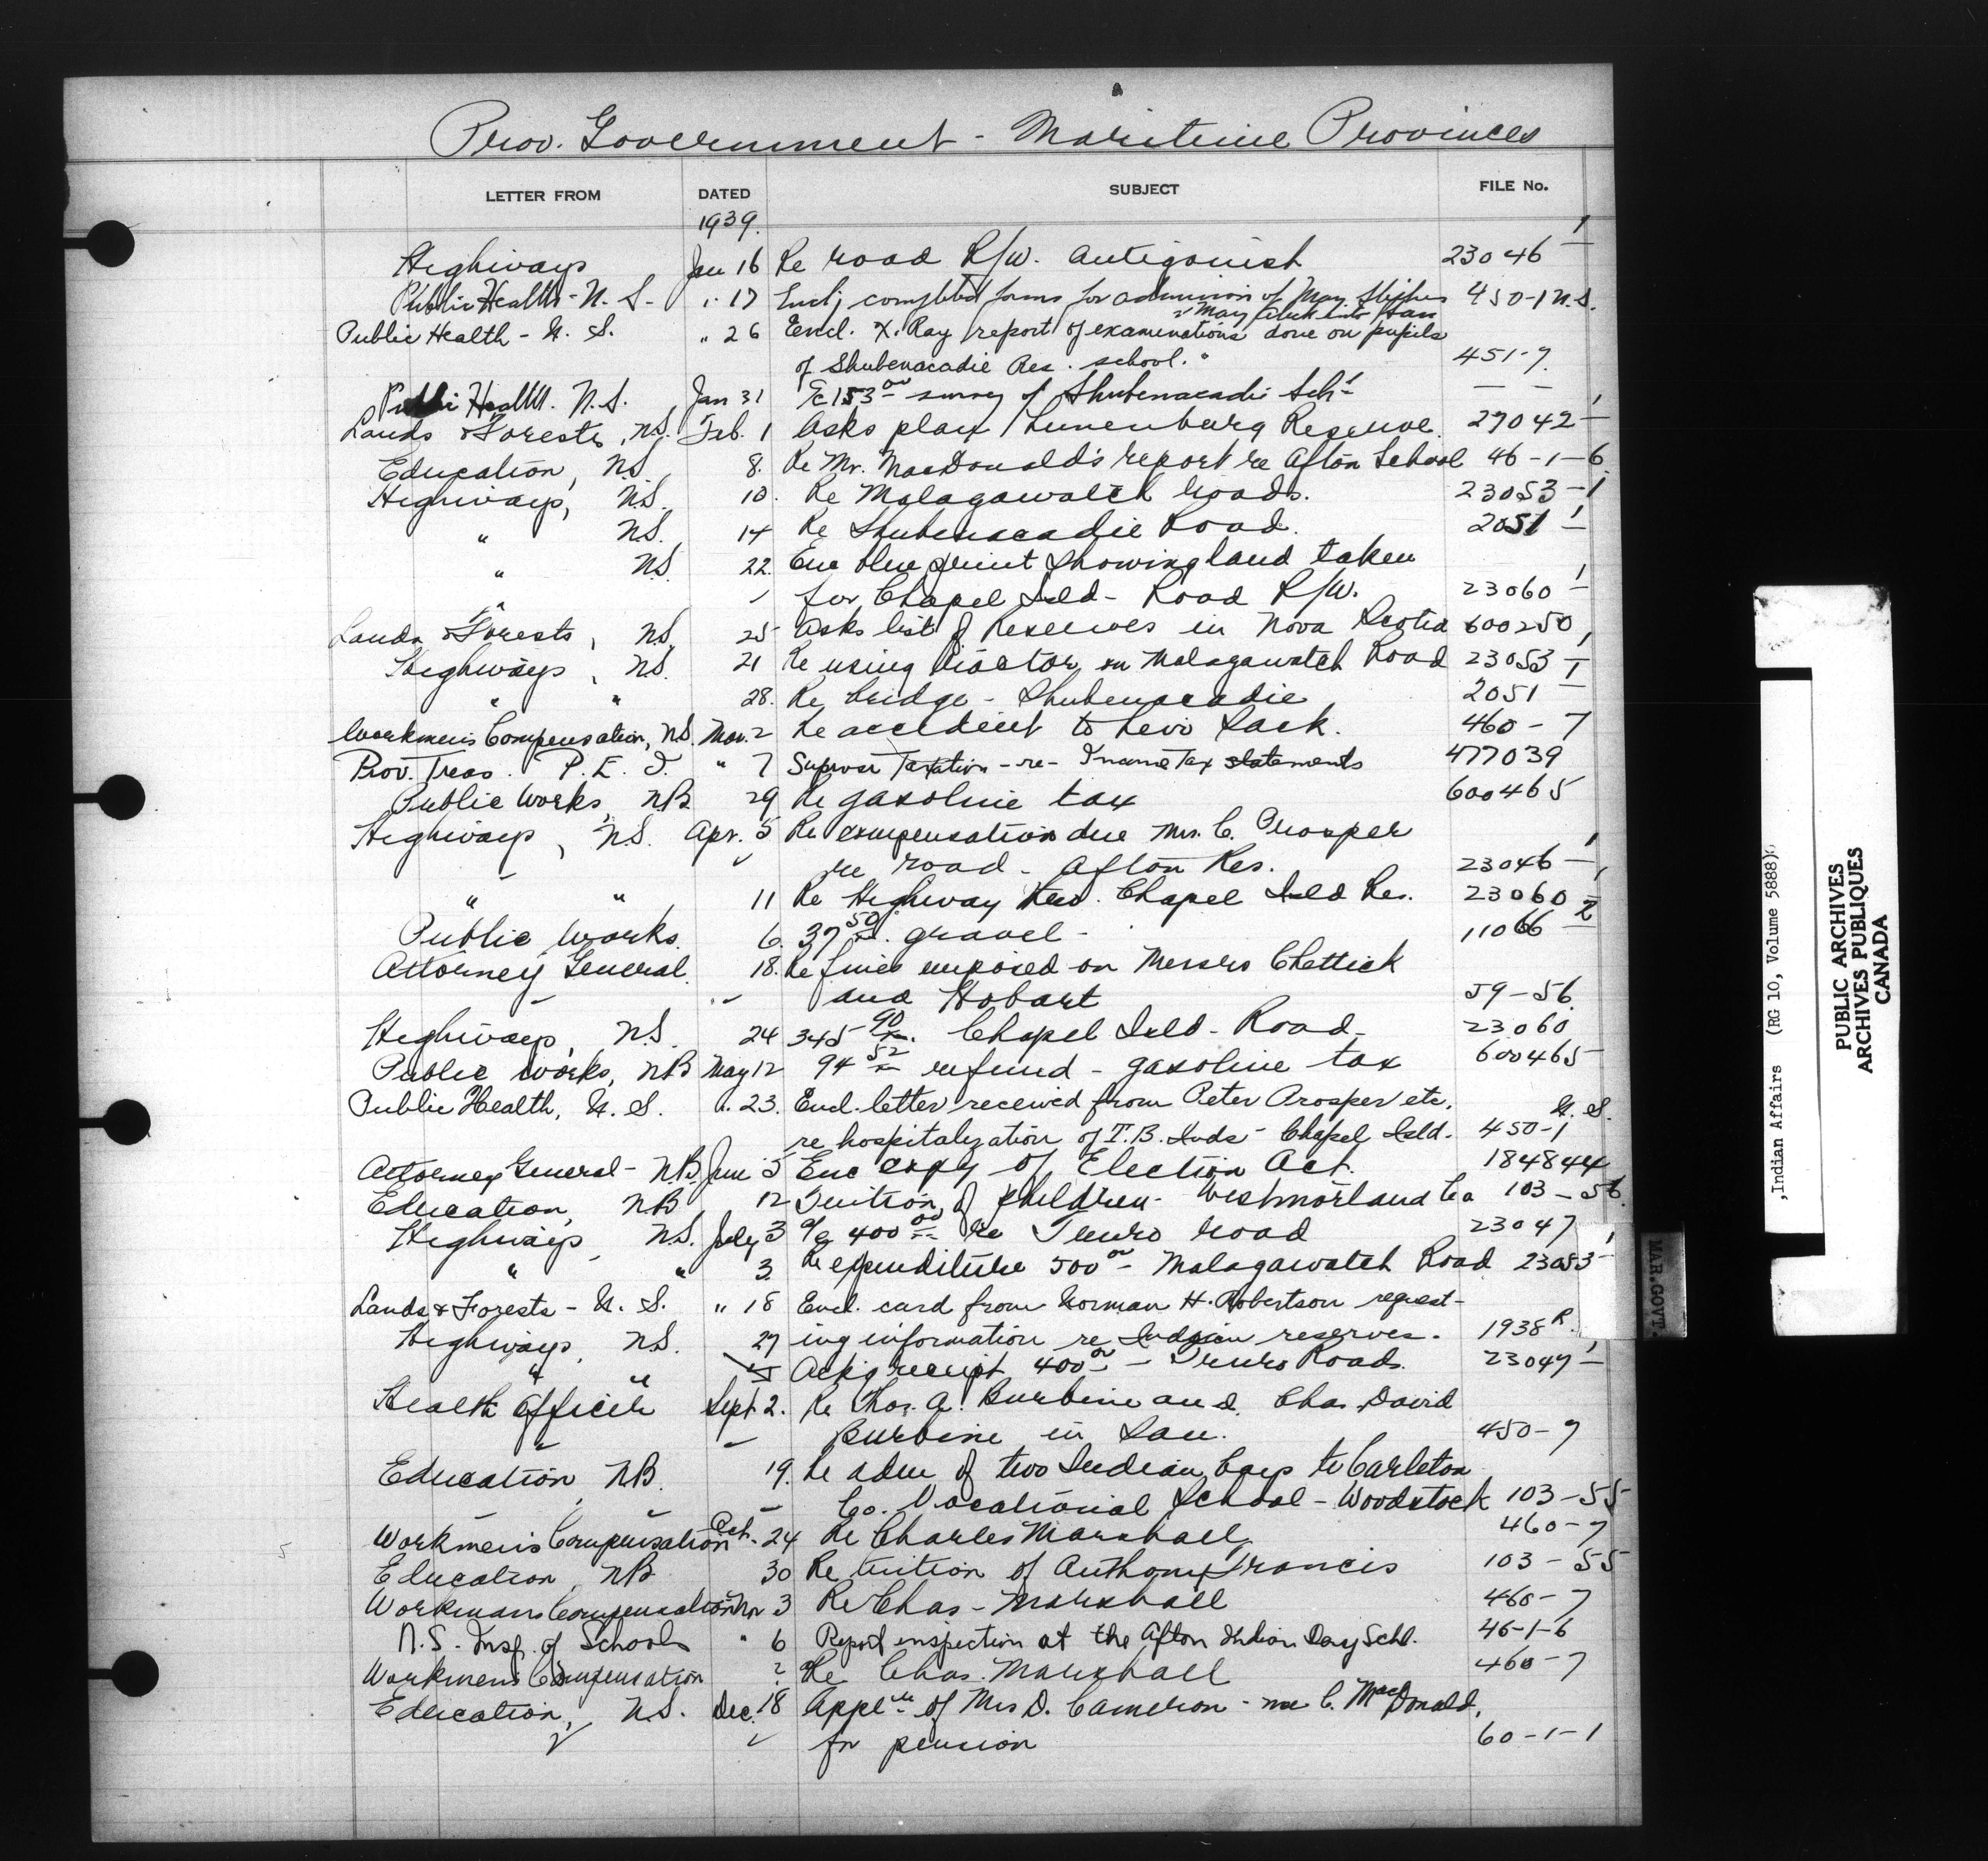 Prov. Government - Maritime Provinces
LETTER FROM DATED SUBJECT FILE No.
1939.
Highways Jan 16 Re road R/W. Antigonish 23046 - 1
Public Health - N. S. - " 17 Encl; completed forms for admission of May Stephens 450-1 N.S.
Public Health - N. S. " 26 Encl. X. Ray report of examinations done on pupils
of Shubenacadie Res. school. " 451-7.
Public Health. N.S. Jan 31 a/c 153 00 survey of Shubenacadie Schl — —
Lands & Forests, N.S. Feb. 1 Asks plan Lunenburg Reserve. 27042 - 1
Education, N.S. 8. Re Mr. MacDonald's report re Afton School 46-1-6
Highways, N.S. 10. Re Malagawatch roads. 23053 - 1
" N.S. 14 Re Shubenacadie Road. 2051 - 1
" N.S. 22. Enc blue print showing land taken
for Chapel Isld - Road R/W. 23060 - 1
Lands & Forests, N.S. 25 Asks list of Reserves in Nova Scotia 600250
Highways, N.S. 21 Re using tractor on Malagawatch Road 23053 - 1
" " 28. Re bridge - Shubenacadie 2051 - 1
Workmen's Compensation, N.S. Mar. 2 Re accident to Levi Sack. 460 - 7
Prov. Treas. P. E. I. " 7 Supvsr Taxation - re - Income Tax statements 477039
Public Works, NB 29 Re gasoline tax 600465
Highways, N.S. Apr. 5 Re compensation due Mrs. C. Prosper
re road - Afton Res. 23046 - 1
" " 11 Re Highway thro. Chapel Isld Res. 23060 - 1
Public Works. 6. 37 50 gravel - 11066 - 2
Attorney General. 18. Re fines imposed on Messrs Chettick
and Hobart 59-56.
Highways, N.S. 24 345 90 Chapel Isld - Road - 23060
Public Works, NB May 12 94 52 refund - gasoline tax 600465
Public Health, N. S. " 23. Encl. letter received from Peter Prosper etc. N. S.
re hospitalization of T.B. Inds - Chapel Isld. 450-1
Attorney General - N.B. June 5 Enc copy of Election Act. 184844
Education, NB 12 Tuition of children - Westmorland Co 103-56.
Highways N.S. July 3 a/c 400 00 re Truro road 23047
" " 3. Re expenditure 500 00 - Malagawatch Road 23053 - 1
Lands & Forests - N. S. " 18 Encl. card from Norman H. Robertson request-
Highways, N.S. 27 ing information re Indian reserves. 1938 R.
" " Ackg receipt 400 00 - Truro Road. 23047 - 1
Health Officer Sept 2. Re Thos. A. Burbine and Chas. David
" - Burbine in San. 450-7
Education, NB. 19. Re adm of two Indian boys to Carleton
- Co. Vocational School - Woodstock 103-55
Workmen's Compensation Oct. 24 Re Charles Marshall 460-7
Education, NB 30 Re tuition of Anthony Francis 103-55
Workmans Compensation Nov 3 Re Chas - Marshall 460-7
N.S. Insp. of Schools " 6 Report inspection at the Afton Indian Day Schl. 46-1-6
Workmens Compensation ? Re Chas. Marshall 460-7
Education, N.S. Dec. 18 Appln of Mrs D. Cameron - nee C. MacDonald,
for pension 60-1-1
,Indian Affairs (RG 10, Volume 5888)
PUBLIC ARCHIVES
ARCHIVES PUBLIQUES
CANADA
MAR. GOVT.